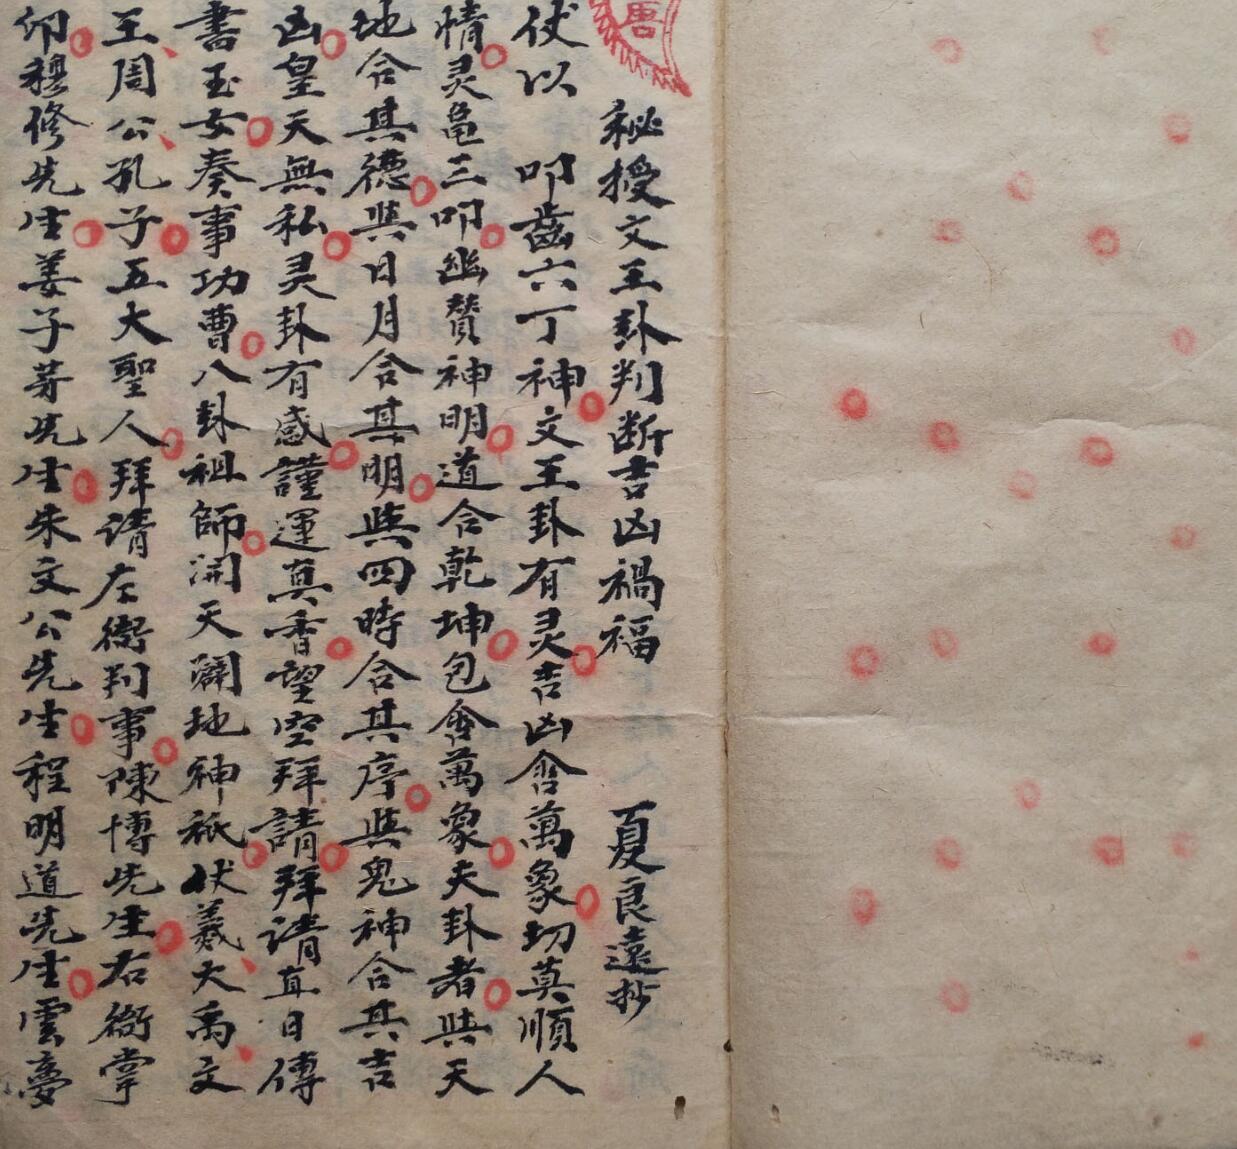 秘授文王卦判断吉凶禍福 夏良遠抄
伏以 叩齒六丁神文王卦有灵吉凶含萬象切莫順人
情灵龟三叩幽贊神明道合乾坤包含萬象夫卦者與天
地合其德與日月合其明與四時合其序與鬼神合其吉
凶皇天無私灵卦有感謹運真香望空拜請拜请直日傳
書玉女奏事功曹八卦祖師開天闢地神祇伏羲大禹文
王周公孔子五大聖人拜请左衙判事陳博先生右衙掌
印穆修先生姜子芽先生朱文公先生程明道先生雲夢